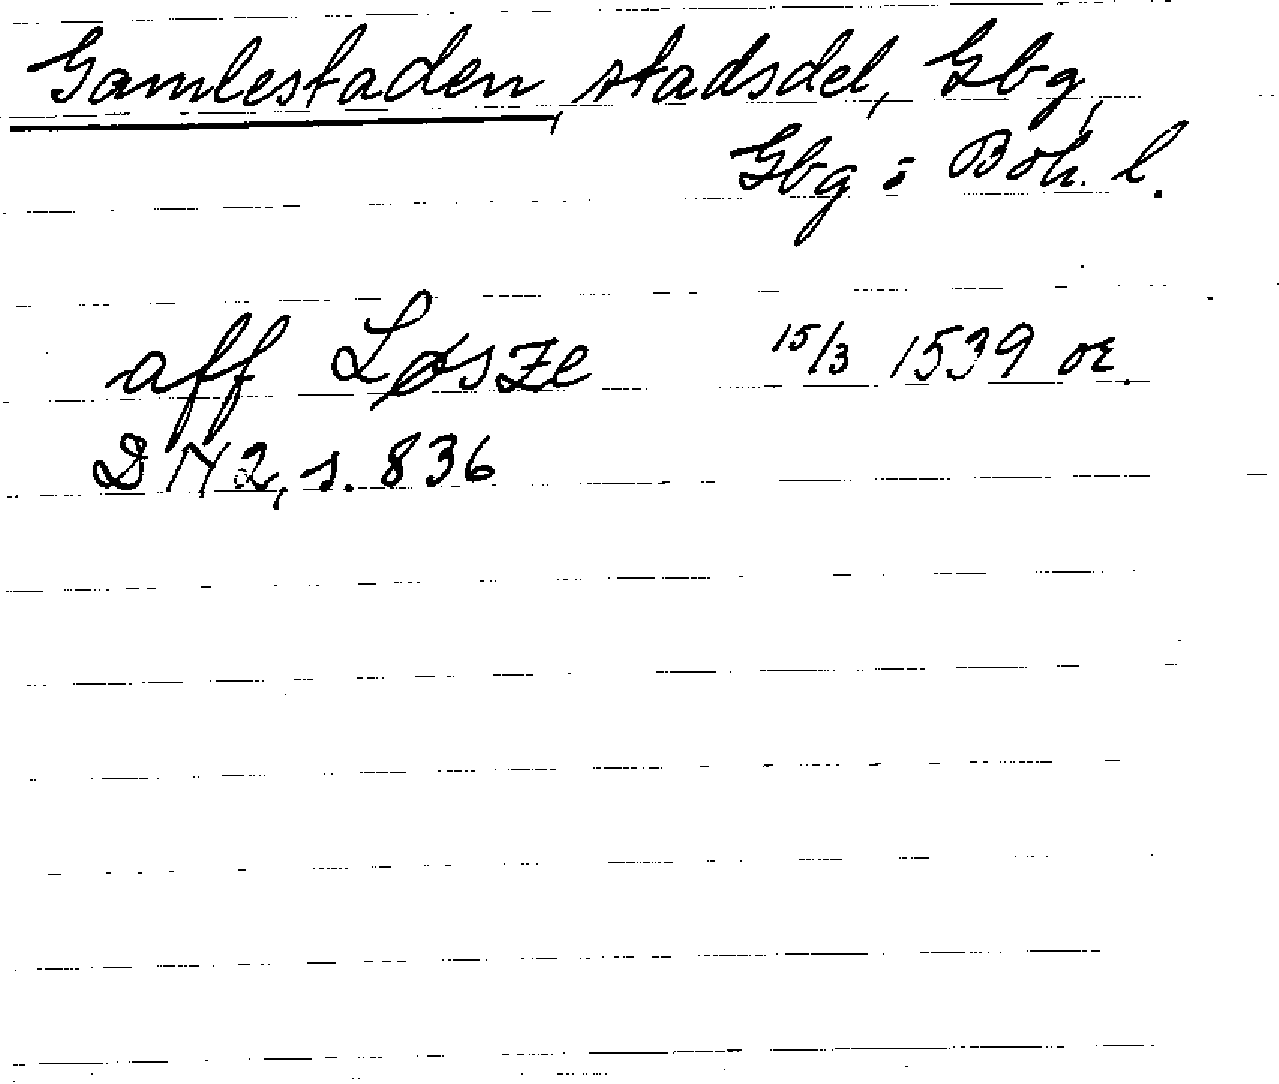 Gamlestaden, stadsdel, Gbg,
Gbg : Boh. l.
aff Løsze 15/3 1539 or.
DN 2, s. 836